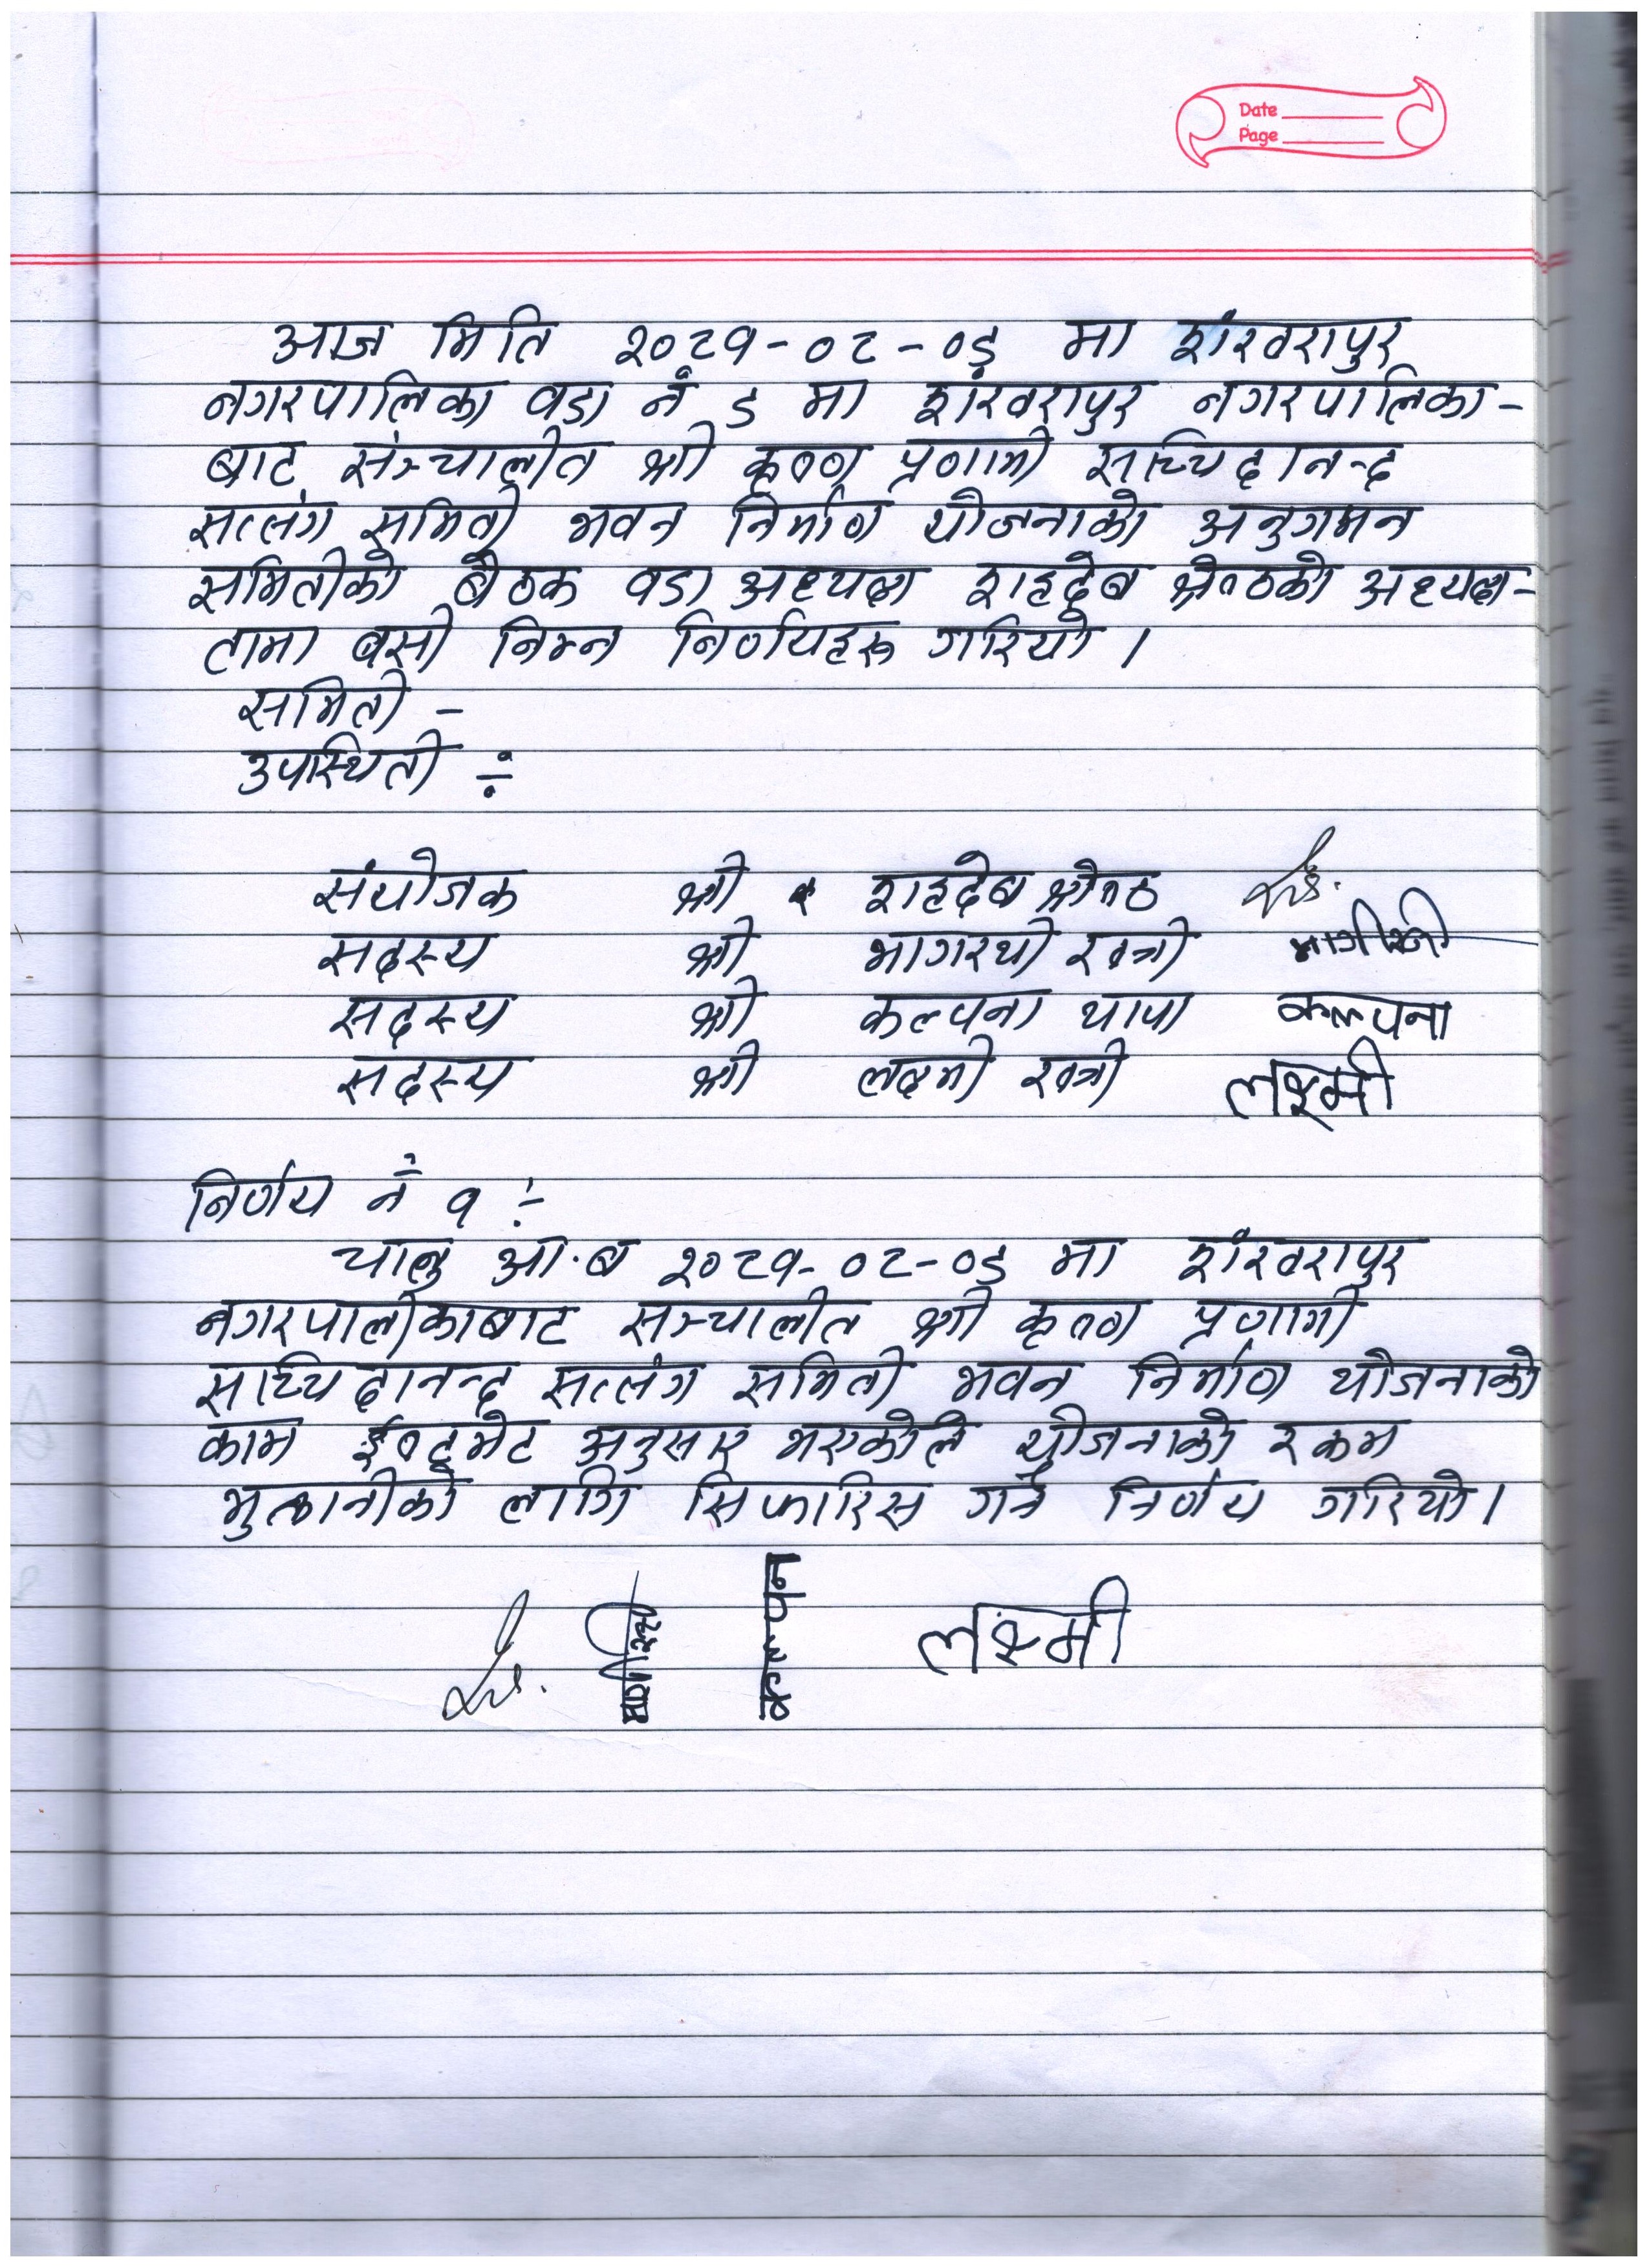 Date
Page
आज मिति २०८१-०८-०६ मा शंखरापुर
नगरपालिका वडा नं ६ मा शंखरापुर नगरपालिका-
बाट संञ्चालीत श्री कृष्ण प्रणामी सच्चिदानन्द
सत्संग समिती भवन निर्माण योजनाको अनुगमन
समितीको बैठक वडा अध्यक्ष शहदेब श्रेष्ठको अध्यक्ष-
तामा बसी निम्न निर्णयहरू गरियो ।
समिती -
उपस्थिती ÷
संयोजक श्री शहदेब श्रेष्ठ
सदस्य श्री भागरथी खत्री
सदस्य श्री कल्पना थापा कल्पना
सदस्य श्री लक्ष्मी खत्री लक्ष्मी
निर्णय नं १ :-
चालु आ.ब २०८१-०८-०६ मा शंखरापुर
नगरपालीकाबाट सञ्चालीत श्री कृष्ण प्रणामी
सच्चिदानन्द सत्संग समिती भवन निर्माण योजनाको
काम ईष्टमेट अनुसार भएकोले योजनाको रकम
भुक्तानीको लागि सिफारिस गर्ने निर्णय गरियो ।
कल्पना लक्ष्मी